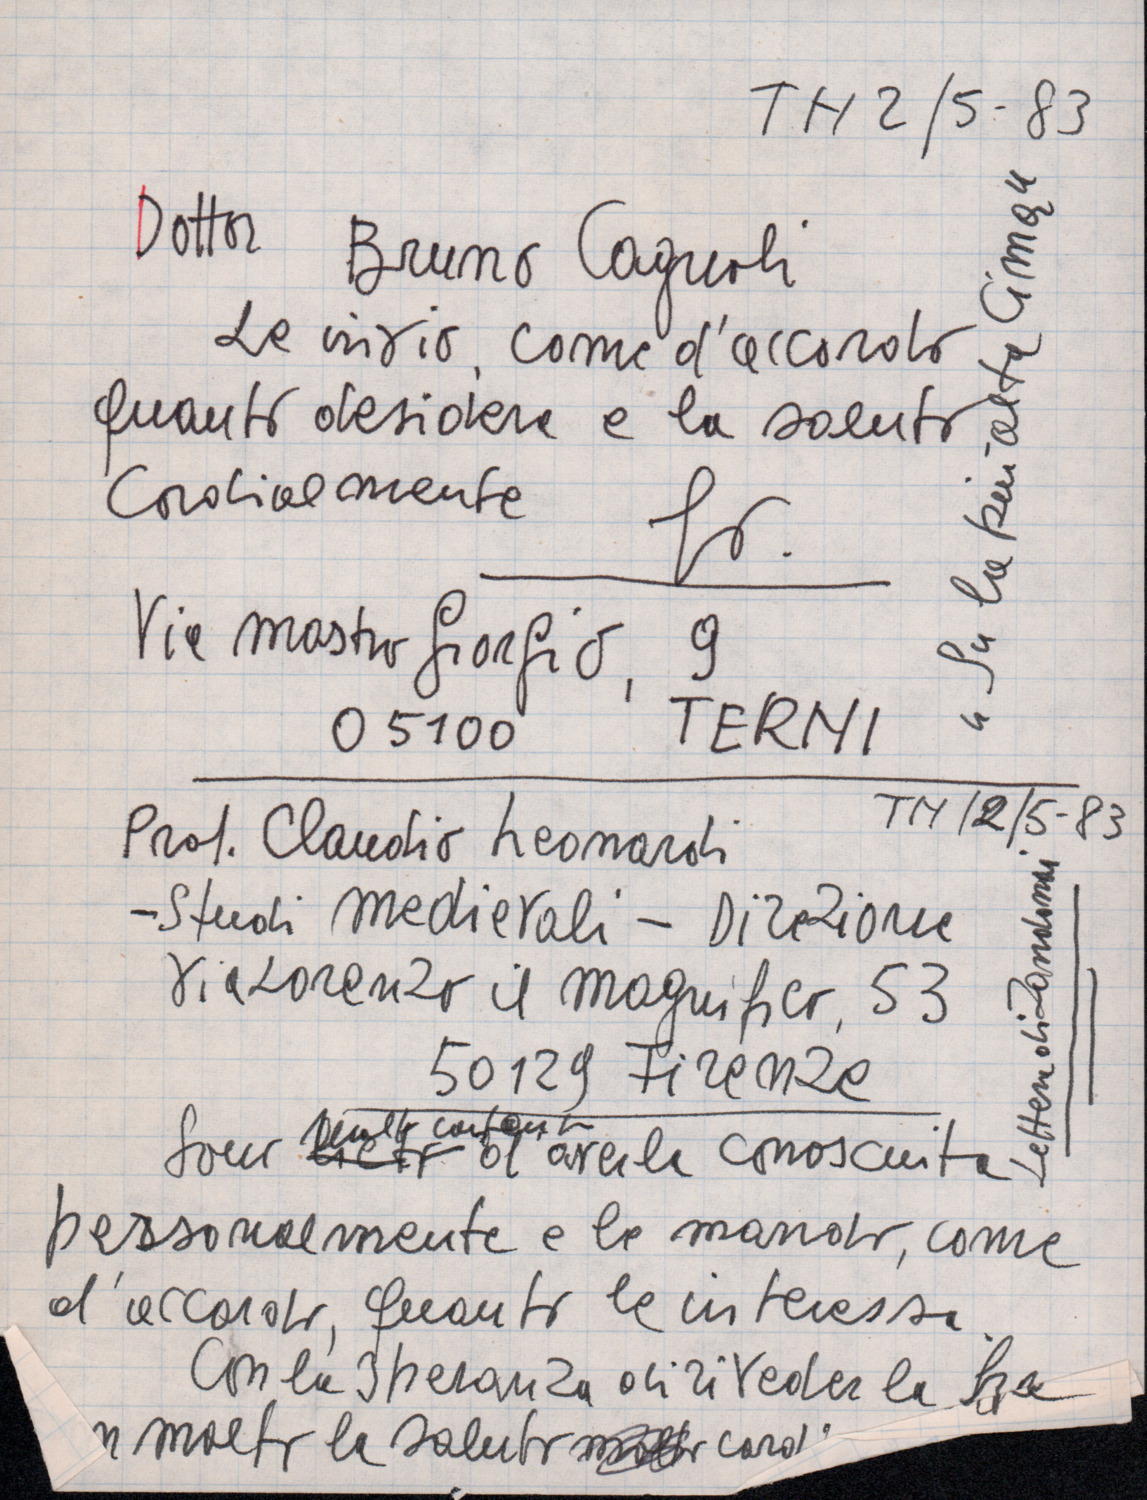 TN 2/5-83
Dottor Bruno Cagnoli
Le invio, come d'accordo
quanto desidera e la saluto
Cordialmente
Via mastro Giorgio, 9
05100 TERNI
" Su la più alta Cima "
TN 12/5-83
Prof. Claudio Leonardi
- Studi medievali - Direzione
Via Lorenzo il magnifico, 53
50129 Firenze
Lettera di Zandonai
molto contento
Sono lieto d'averla conosciuta
personalmente e le mando, come
d'accordo, quanto le interessa.
Con la speranza di riveder la fra
n molto la saluto molto cordi